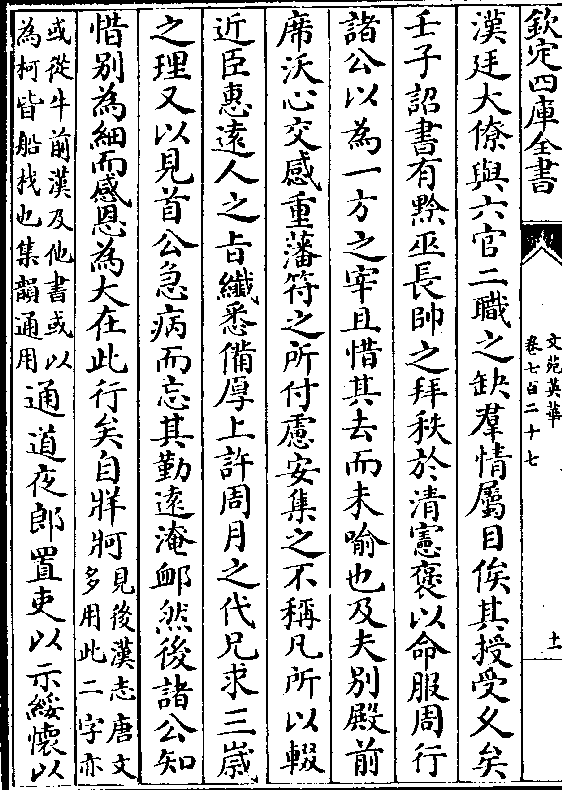 欽定四庫全書
文苑英華
卷七百二十七
十一
漢廷大僚與六官二職之缺羣情屬目俟其授受久矣
壬子詔書有黔巫長帥之拜秩於清憲褒以命服周行
諸公以為一方之牢且惜其去而未喻也及夫別殿前
席沃心交感重藩符之所付慮安集之不稱凡所以輟
近臣惠遠人之㫖纖悉備厚上許周月之代兄求三嵗
之理又以見首公急病而忘其勤逺淹䘏然後諸公知
惜别為細而感恩為大在此行矣自牂牁
見後漢志唐文
多用此二字亦
或從牛前漢及他書或以
為柯皆船杙也集韻通用
通道夜郎置吏以示綏懷以